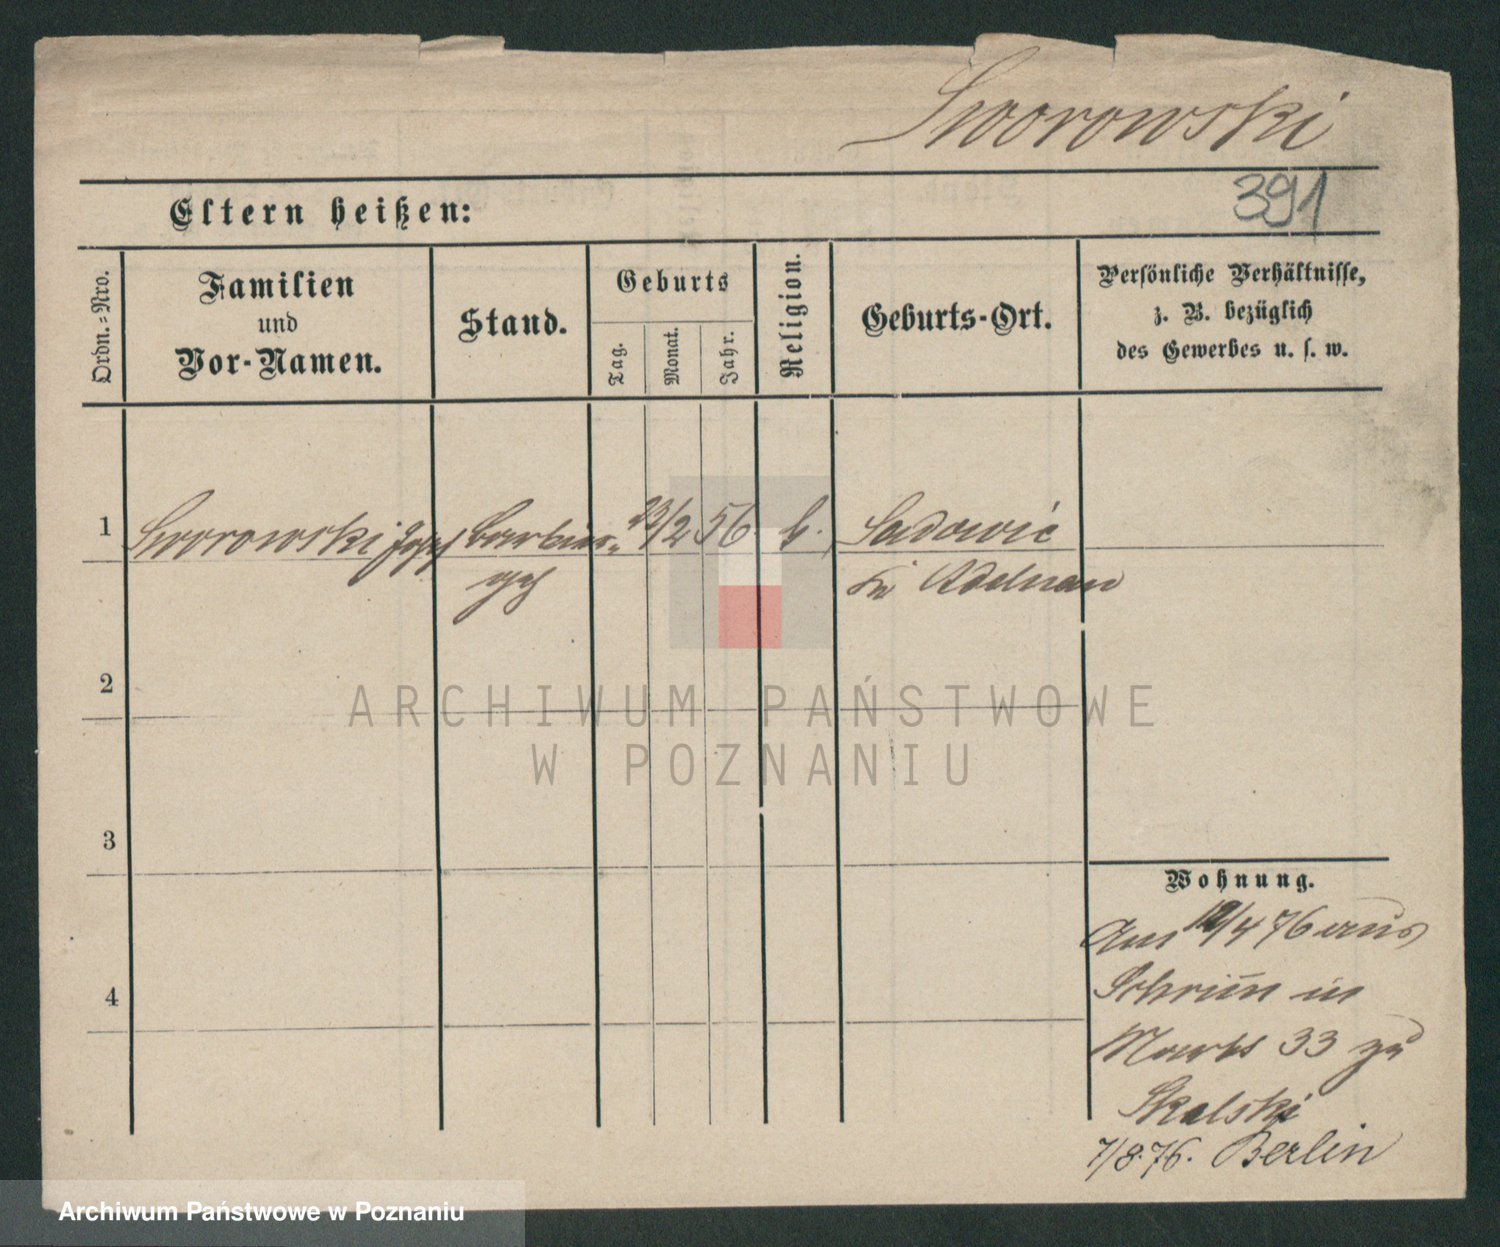 Sworowski
391
Eltern heißen:
Ordn.-Nro.
Familien
und
Vor-Namen.
Stand.
Geburts
Tag.
Monat.
Jahr.
Religion.
Geburts-Ort.
Persönliche Verhältnisse,
z. B. bezüglich
des Gewerbes u. s. w.
1 Sworowski Josef Barbier- 23/2 56 k. Sadowie
geh Kr Adelnau
2
3
4
Wohnung.
Am 12/4 76 aus
Schrim in
Markt 33 zu
Skalski
7/8.76. Berlin
ARCHIWUM PAŃSTWOWE
W POZNANIU
Archiwum Państwowe w Poznaniu